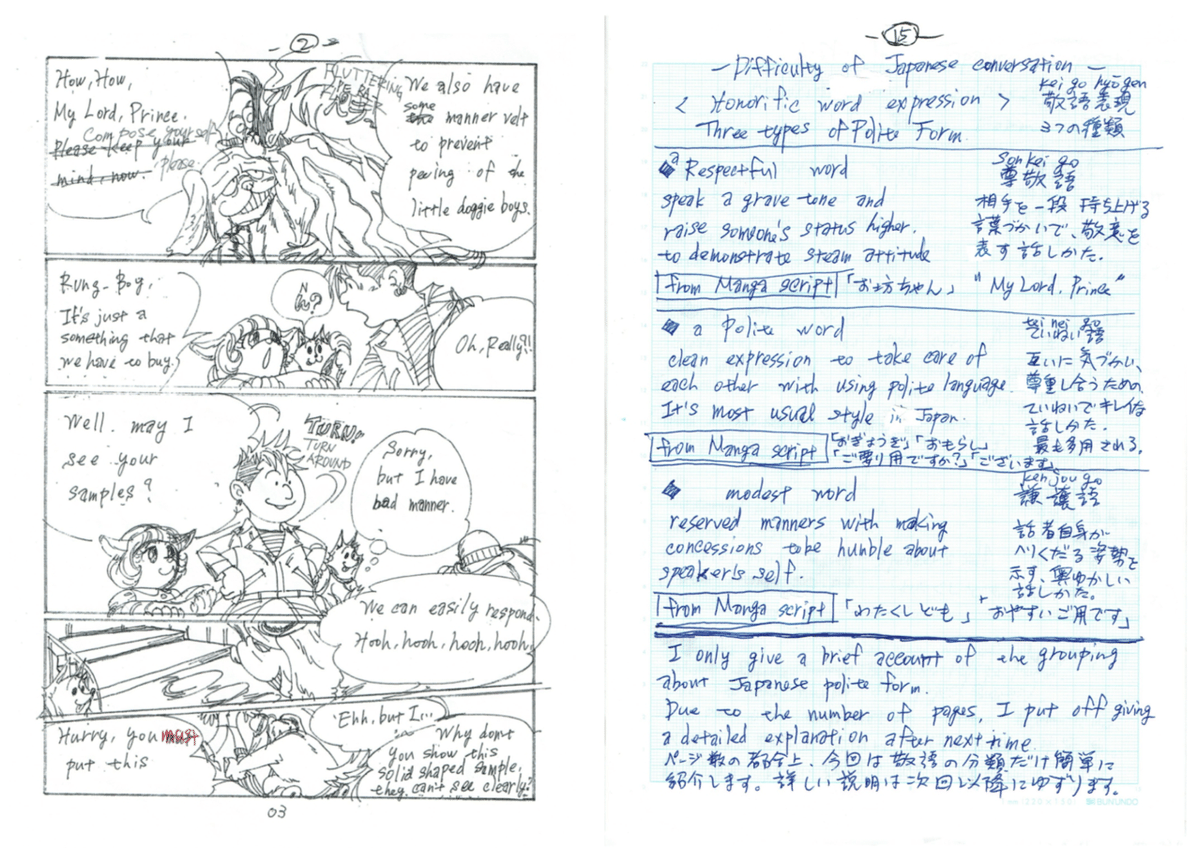 - ② -
How, How,
My Lord, Prince.
Compose yourself
Please keep your
please.
mind, now.
FLUTTERING
We also have
some
manner velt
to prevent
peeing of the
little doggie boys.
Rung-Bog,
It's just a
something that
we have to buy.
Oh, Really?!
Well. may I
see your
samples?
TURN
TURN
AROUND
Sorry,
but I have
bad manner.
We can easily respond.
Hooh, hooh, hooh, hooh,
Hurry, you must
put this
Ehh, but I...
Why don't
you show this
solid shaped sample,
they can't see clearly?
03
- ⑮ -
— Difficulty of Japanese conversation —
kei go hyōgen
< Honorific word expression > 敬語表現
Three types of Polite Form. 3つの種類
son kei go
◆ a Respectful word 尊敬語
speak a grave tone and 相手を一段持ち上げる
raise someone's status higher. 言葉づかいで、敬意を
to demonstrate steam attitude 表す話しかた。
from Manga script 「お坊ちゃん」 "My Lord, Prince"
tei nei go
◆ a Polite word ていねい語
clean expression to take care of 互いに気づかい、
each other with using polite language. 尊重し合うための、
It's most usual style in Japan. ていねいでキレイな
話しかた。
最も多用される。
from Manga script 「おぎょうぎ」「おもらし」
「ご要り用ですか?」「ございます」
kenjou go
◆ modest word 謙譲語
reserved manners with making 話者自身が
concessions to be humble about へりくだる姿勢を
speaker's self. 示す、奥ゆかしい
話しかた。
from Manga script 「わたくしども」 「おやすいご用です」
I only give a brief account of the grouping
about Japanese polite form.
Due to the number of pages, I put off giving
a detailed explanation after next time.
ページ数の都合上、今回は敬語の分類だけ簡単に
紹介します。詳しい説明は次回以降にゆずります。
BUNUNDO